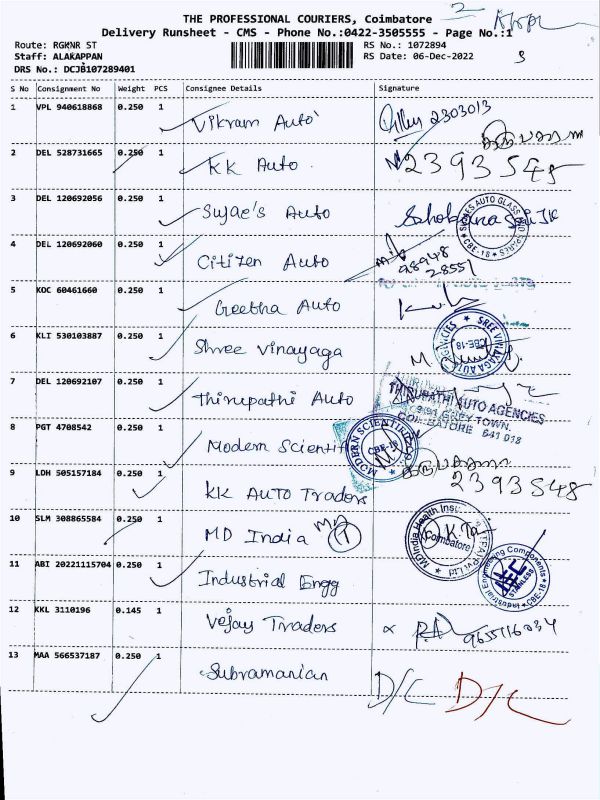 THE PROFESSIONAL COURIERS, Coimbatore
Delivery Runsheet - CMS - Phone No.:0422-3505555 - Page No.:1
Route: RGKNR ST
RS No.: 1072894
Staff: ALAKAPPAN
RS Date: 06-Dec-2022
DRS No.: DCJB107289401
S No Consignment No Weight PCS Consignee Details Signature
1 VPL 940618868 0.250 1 Vikram Auto 2303013
2 DEL 528731665 0.250 1 KK Auto 2393548
3 DEL 120692056 0.250 1 Sujae's Auto
4 DEL 120692060 0.250 1 Citizen Auto 98948
28551
5 KOC 60461660 0.250 1 Geetha Auto
6 KLI 530103887 0.250 1 Shree Vinayaga
SREE VINAYAGA AUTO AGENCIES
CBE-18
7 DEL 120692107 0.250 1 Thirupathi Auto
THIRUPATHI AUTO AGENCIES
641 018
8 PGT 4708542 0.250 1 Modern Scientif
MODERN SCIENTIFIC
CBE-18
9 LDH 505157184 0.250 1 KK AUTO Traders 2393548
10 SLM 308865584 0.250 1 MD India
MDIndia Health Insu
Coimbatore
11 ABI 20221115704 0.250 1 Industrial Engg
Industrial Engineering Components
CBE-18
12 KKL 3110196 0.145 1 Vejay Traders 9655116034
13 MAA 566537187 0.250 1 Subramanian D/C D/C